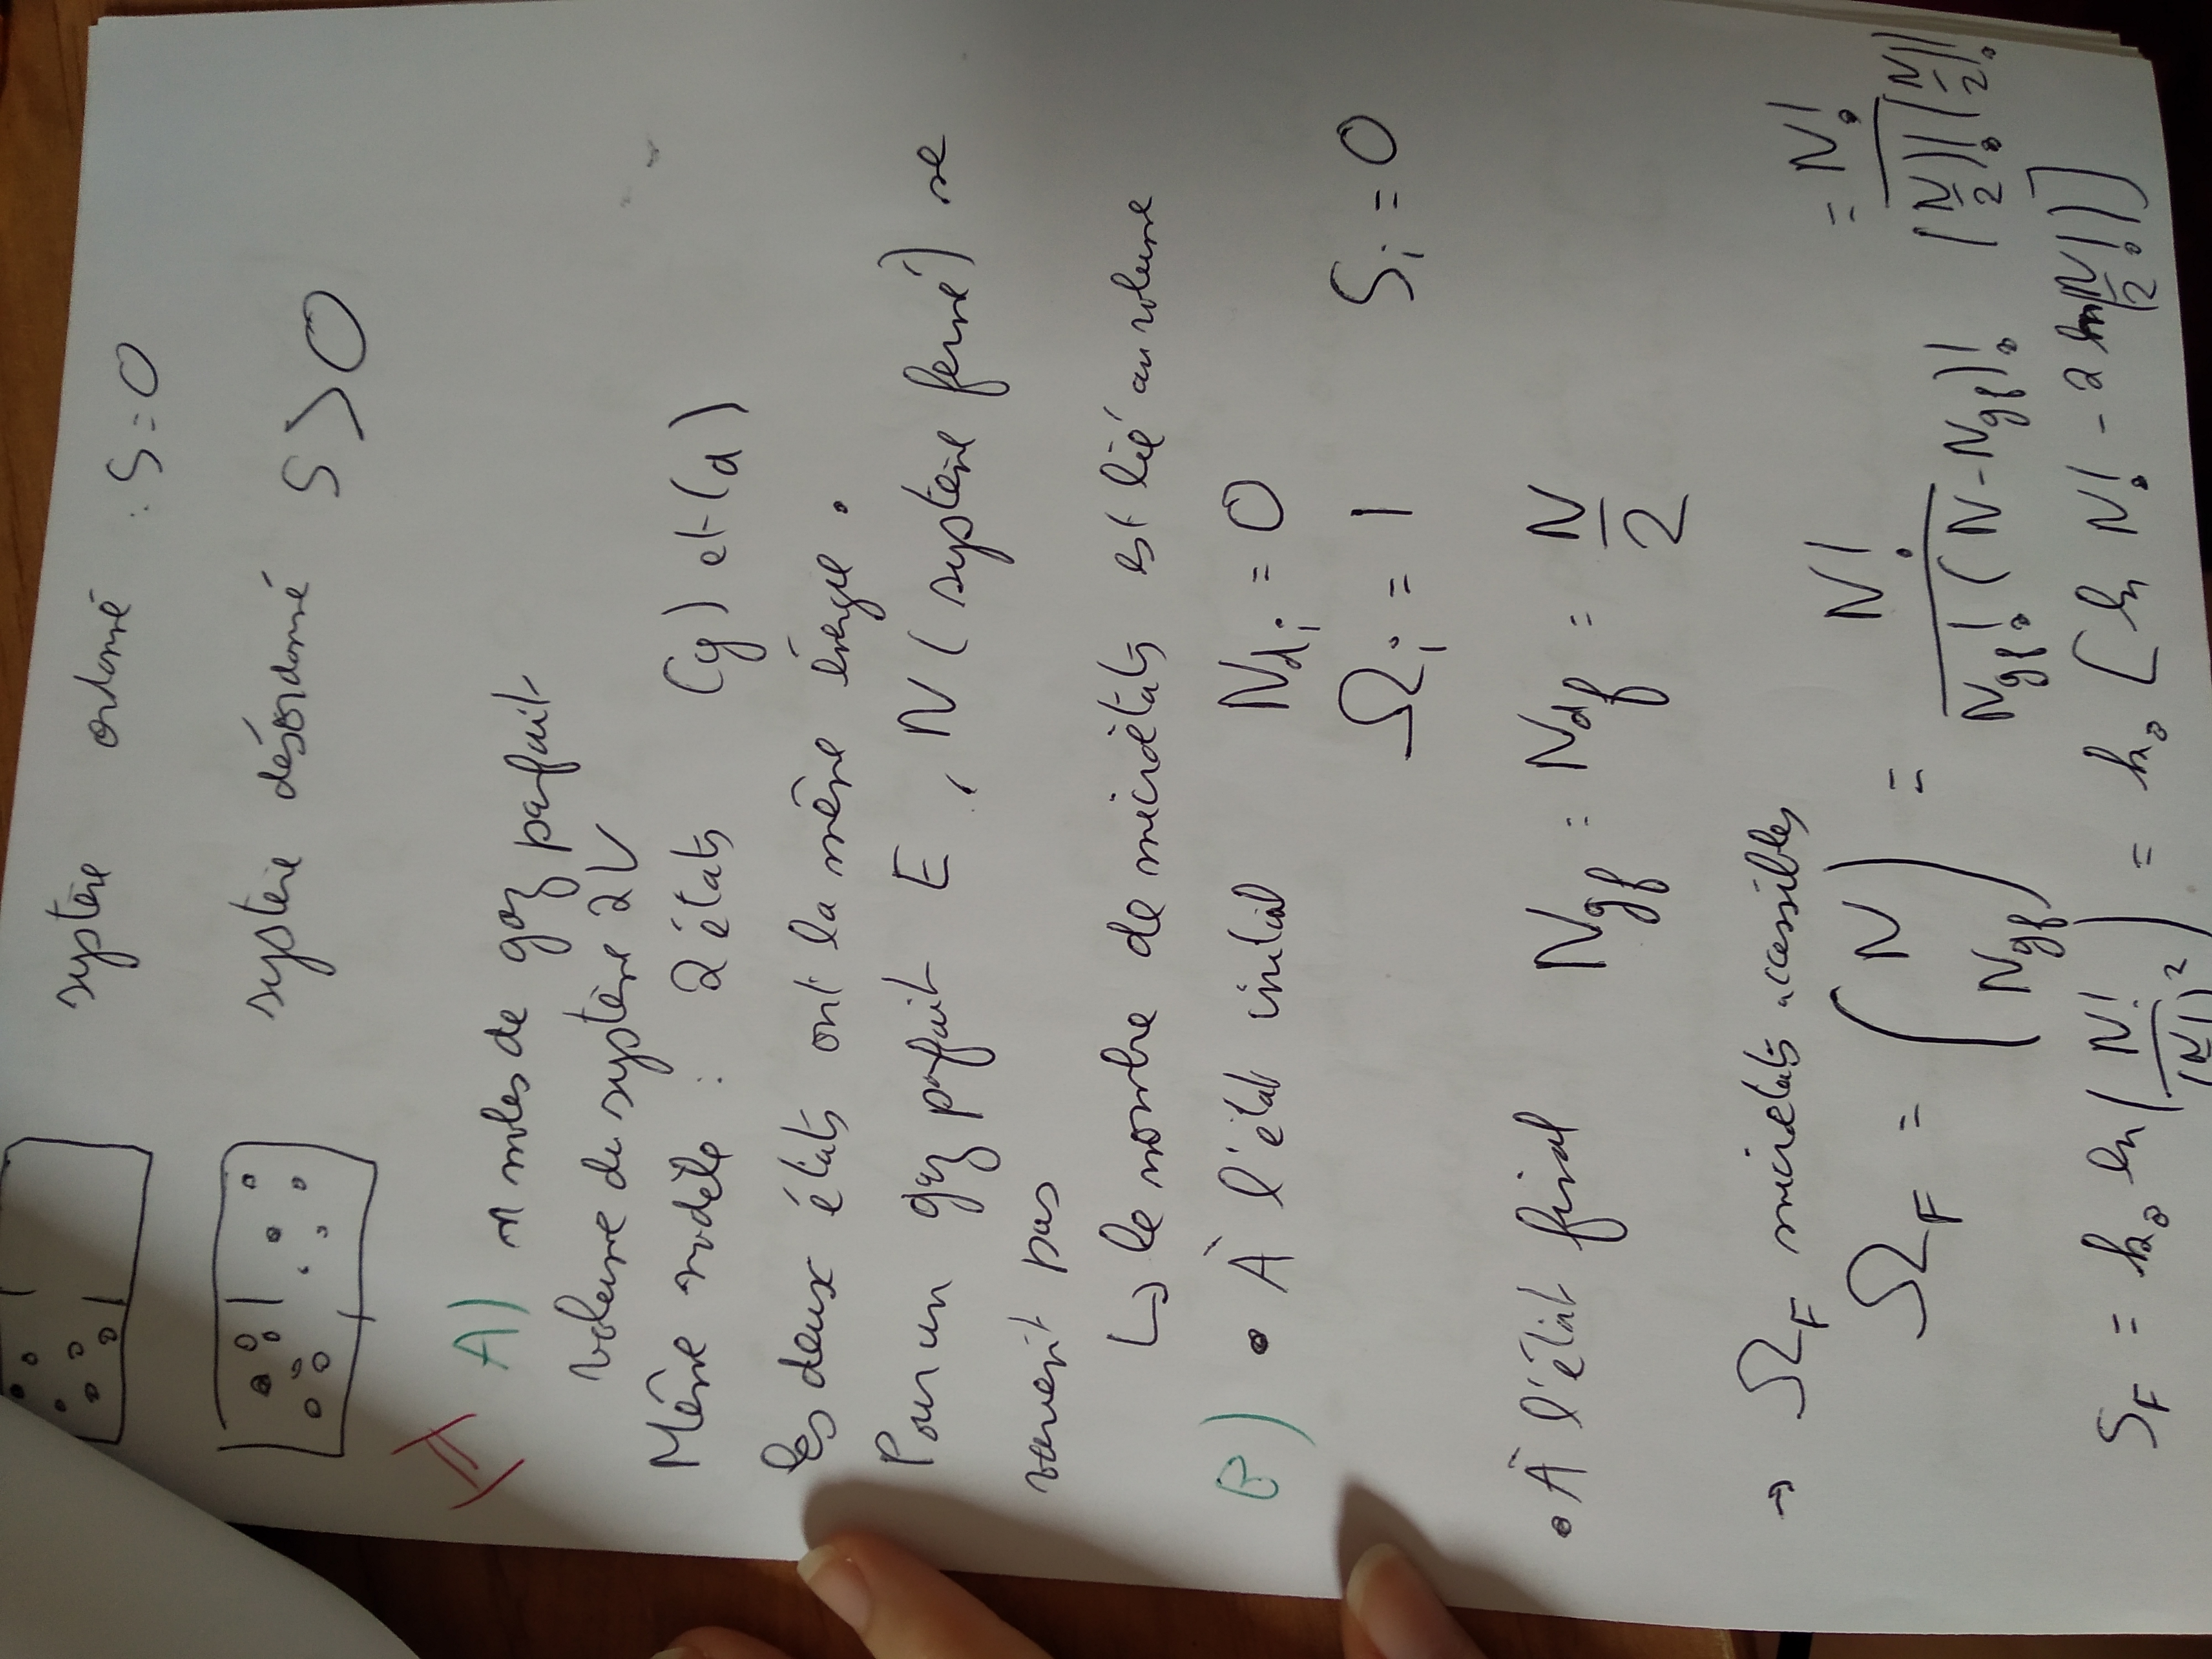 système ordonné : S=0
système désordonné S > 0
II A) n moles de gaz parfait
Volume du système 2V
Même modèle : 2 états (g) et (d)
les deux états ont la même énergie.
Pour un gaz parfait E, N (système fermé) se
varient pas
↳ le nombre de microétats est lié au volume
B) • À l'état initial Ndi = 0
Ωi = 1 Si = 0
• À l'état final Ngf = Ndf = N/2
→ ΩF microétats accessibles
ΩF = (N Ngf) = N!/(Ngf!(N-Ngf)!) = N!/((N/2)!(N/2)!)
SF = kB ln(N!/(N/2!)²) = kB [ln N! - 2 ln(N/2!)]